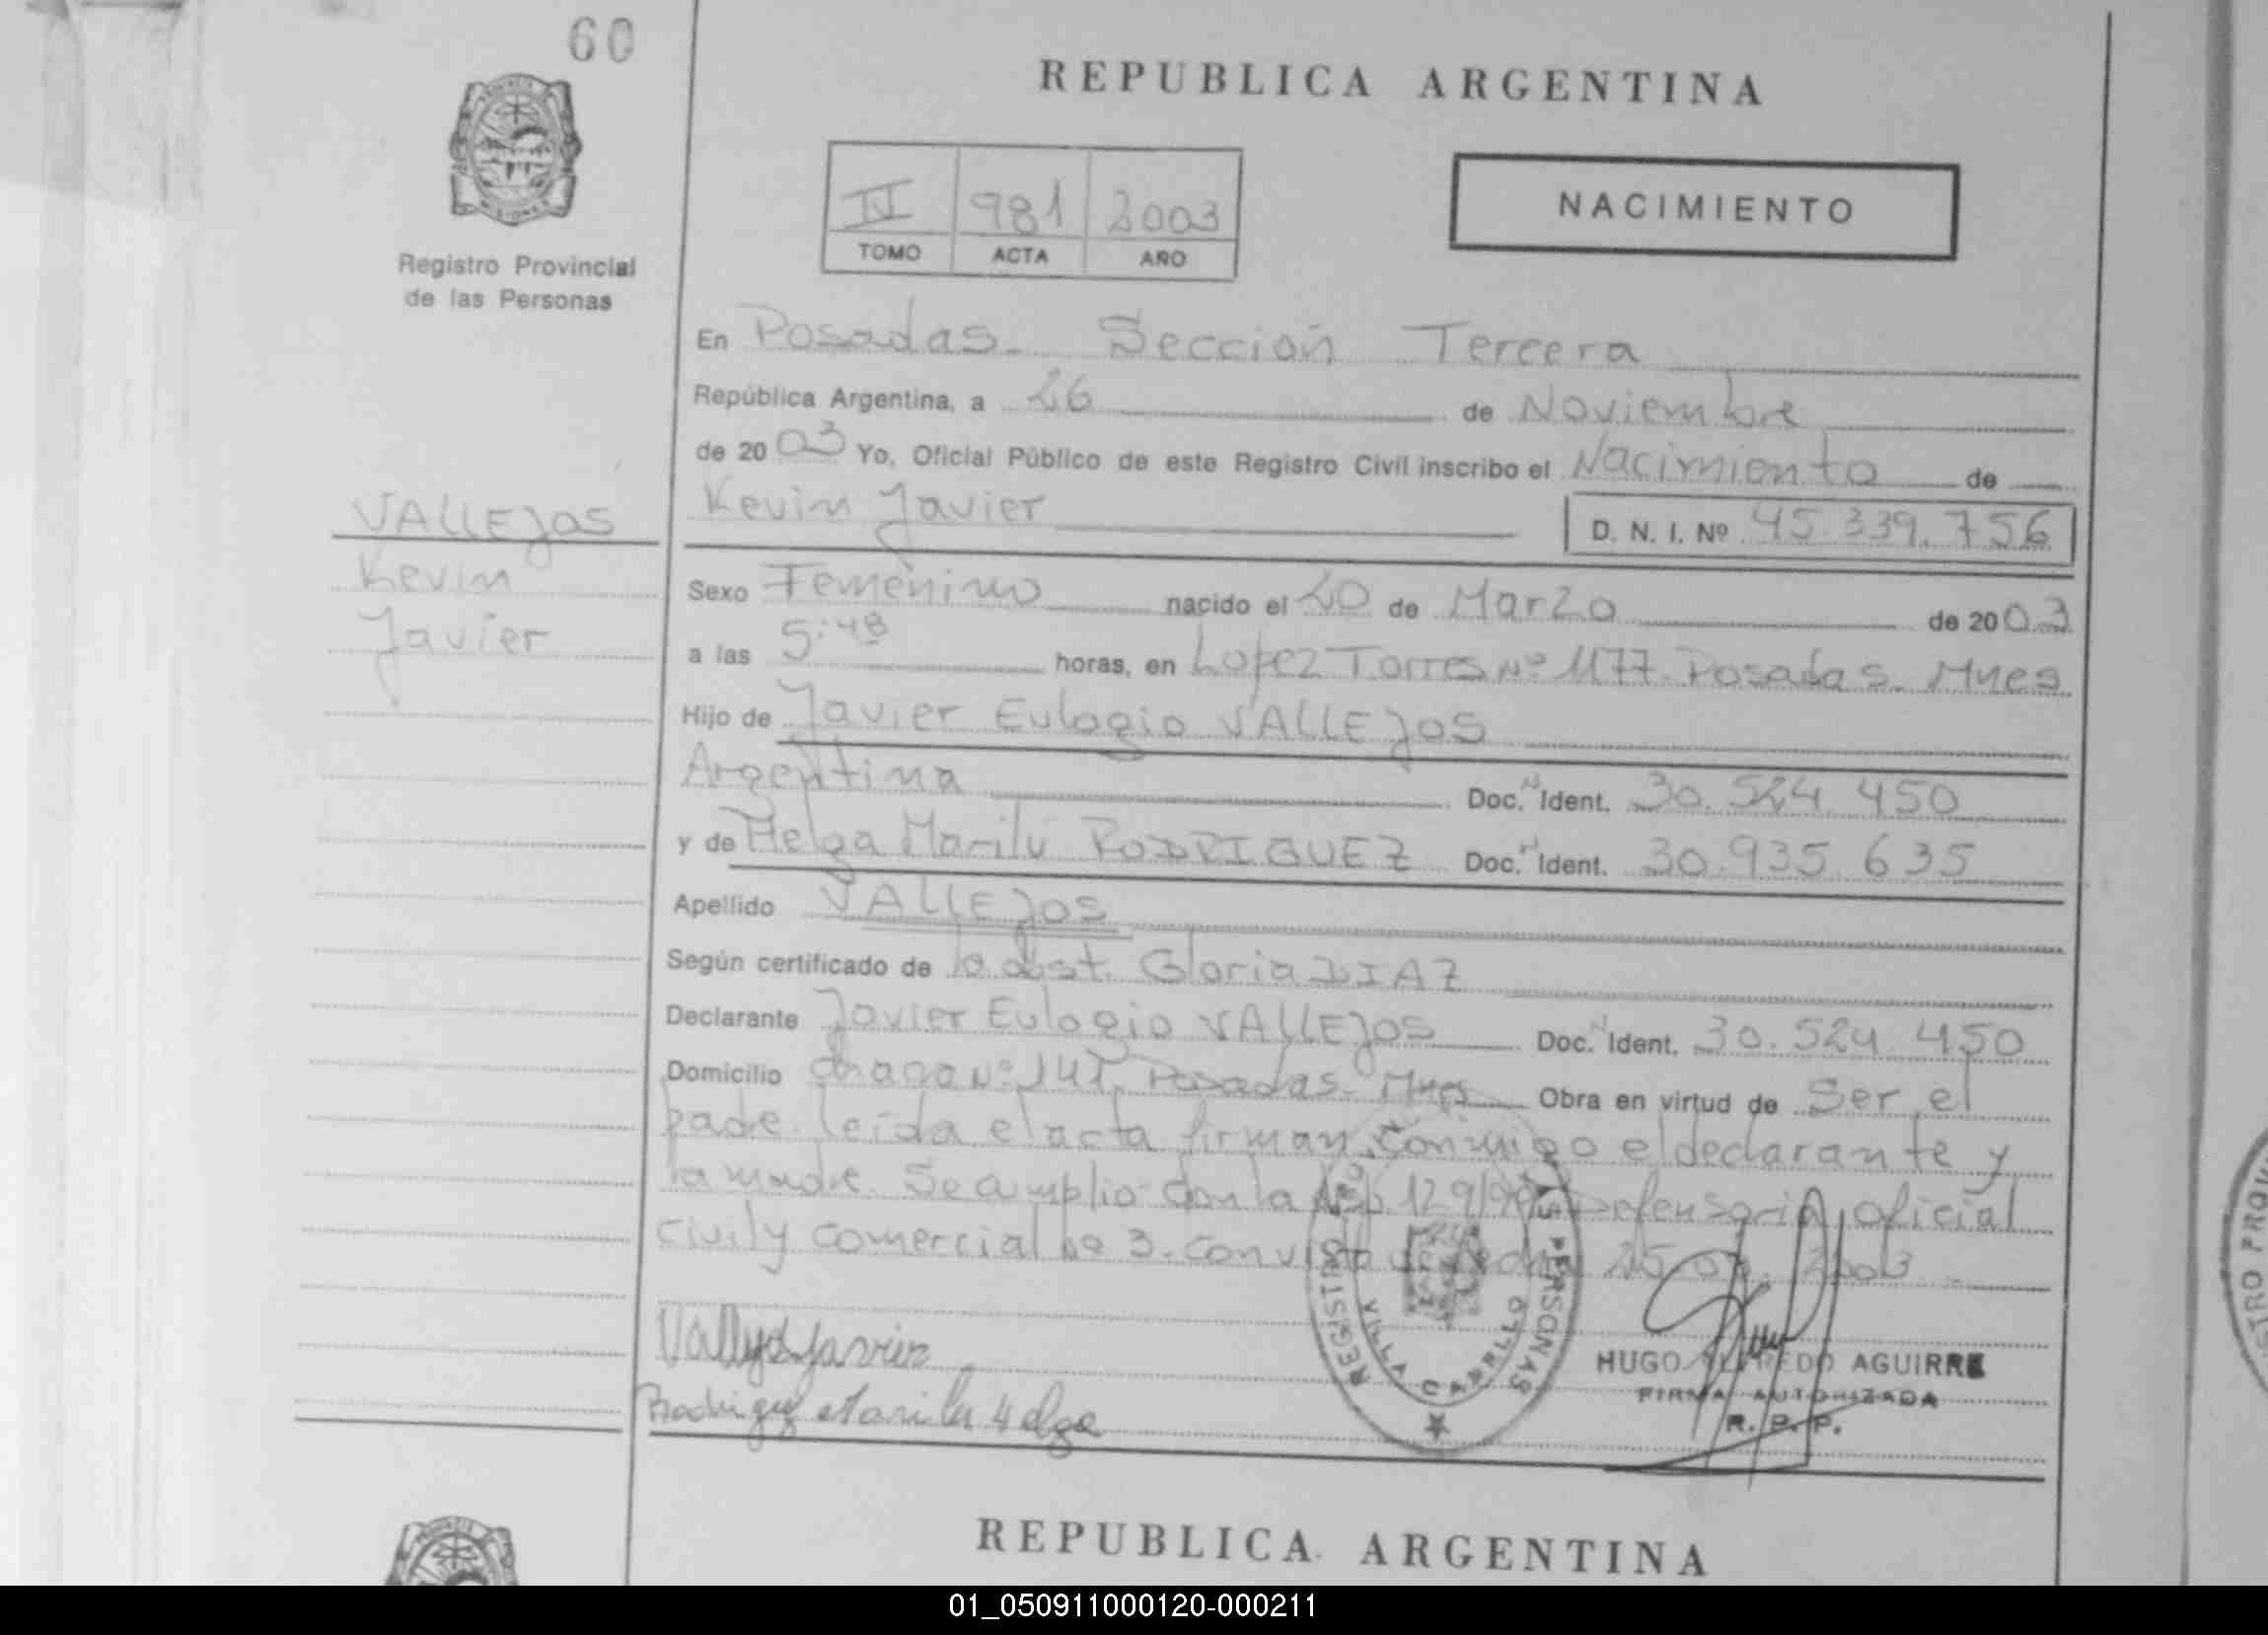 60
REPUBLICA ARGENTINA
IV 981 2003
TOMO ACTA AÑO
NACIMIENTO
Registro Provincial
de las Personas
En Posadas - Sección Tercera
República Argentina, a 26 de Noviembre
de 2003 Yo, Oficial Público de este Registro Civil inscribo el Nacimiento de
VALLEJOS
Kevin
Javier
Kevin Javier D. N. I. Nº 45.339.756
Sexo Femenino nacido el 20 de Marzo de 2003
a las 5:48 horas, en Lopez Torres Nº 1177. Posadas - Mnes
Hijo de Javier Eulogio VALLEJOS
Argentina Doc. N Ident. 30.524.450
y de Helga Marilú RODRIGUEZ Doc. N Ident. 30.935.635
Apellido VALLEJOS
Según certificado de la obst. Gloria DIAZ
Declarante Javier Eulogio VALLEJOS Doc. N Ident. 30.524.450
Domicilio Nº 141. Posadas - Mnes Obra en virtud de Ser el
pade. leída el acta firman conmigo el declarante y
la madre. Se amplio con la 129/ Defensoria oficial
civil y comercial No 3. con vista de fecha 2003
Vallejos Javier
Rodriguez Marilu Helga
REGISTRO PERSONAS
VILLA CABELLO
HUGO ALFREDO AGUIRRE
FIRMA AUTORIZADA
R. P. P.
REPUBLICA ARGENTINA
01_050911000120-000211